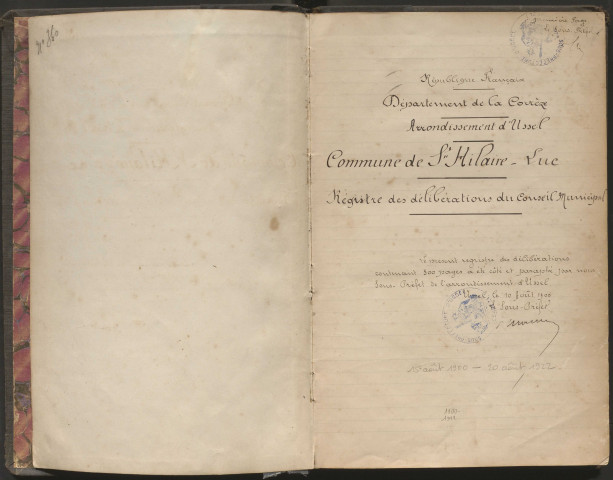 N° 260
République Français
Département de la Corrèze
Arrondissement d'Ussel
Commune de St Hilaire - Luc
Régistre des délibérations du Conseil Municipal
Le présent registre des délibérations
contenant 300 pages a été coté et paraphé par nous
Sous-Préfet de l'arrondissement d'Ussel
le 10 Août 1900
Le Sous-Préfet
15 août 1900 — 20 août 1922
1900
1922